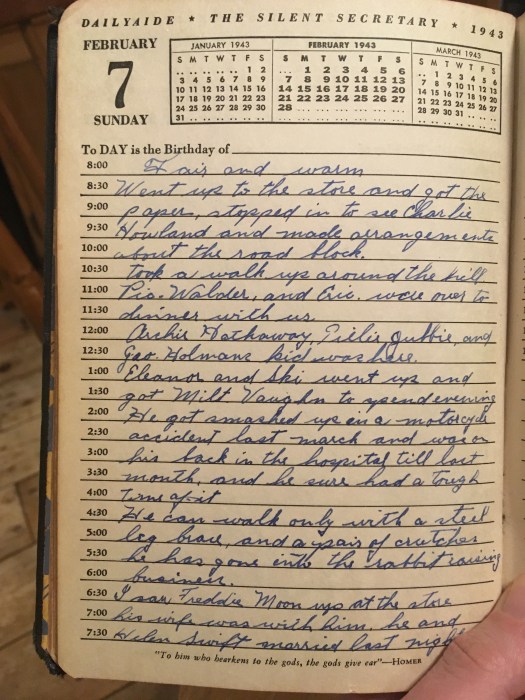 DAILYAIDE ★ THE SILENT SECRETARY ★ 1943
FEBRUARY
7
SUNDAY
JANUARY 1943
S M T W T F S
.. .. .. .. .. 1 2
3 4 5 6 7 8 9
10 11 12 13 14 15 16
17 18 19 20 21 22 23
24 25 26 27 28 29 30
31 .. .. .. .. .. ..
FEBRUARY 1943
S M T W T F S
... 1 2 3 4 5 6
7 8 9 10 11 12 13
14 15 16 17 18 19 20
21 22 23 24 25 26 27
28 .. .. .. .. .. ..
MARCH 1943
S M T W T F S
.. 1 2 3 4 5 6
7 8 9 10 11 12 13
14 15 16 17 18 19 20
21 22 23 24 25 26 27
28 29 30 31 .. .. ..
To DAY is the Birthday of
8:00 Fair and warm
8:30 Went up to the store and got the
9:00 paper, stopped in to see Charlie
9:30 Howland and made arrangements
10:00 about the road block.
10:30 took a walk up around the hill
11:00 Pia. Walder, and Eric. were over to
11:30 dinner with us.
12:00 Archie Hathaway, Gubbie, and
12:30 Geo. Holmans kid was here.
1:00 Eleanor and Ski went up and
1:30 got Milt Vaughn to spend evening
2:00 He got smashed up in a motorcycle
2:30 accident last march and was on
3:00 his back in the hospital till last
3:30 month, and he sure had a tough
4:00 time of it
4:30 He can walk only with a steel
5:00 leg brace, and a pair of crutches
5:30 he has gone into the rabbit raising
6:00 business.
6:30 I saw Freddie Moon up at the store
7:00 his wife was with him. he and
7:30 Helen Swift married last night
"To him who hearkens to the gods, the gods give ear"—HOMER